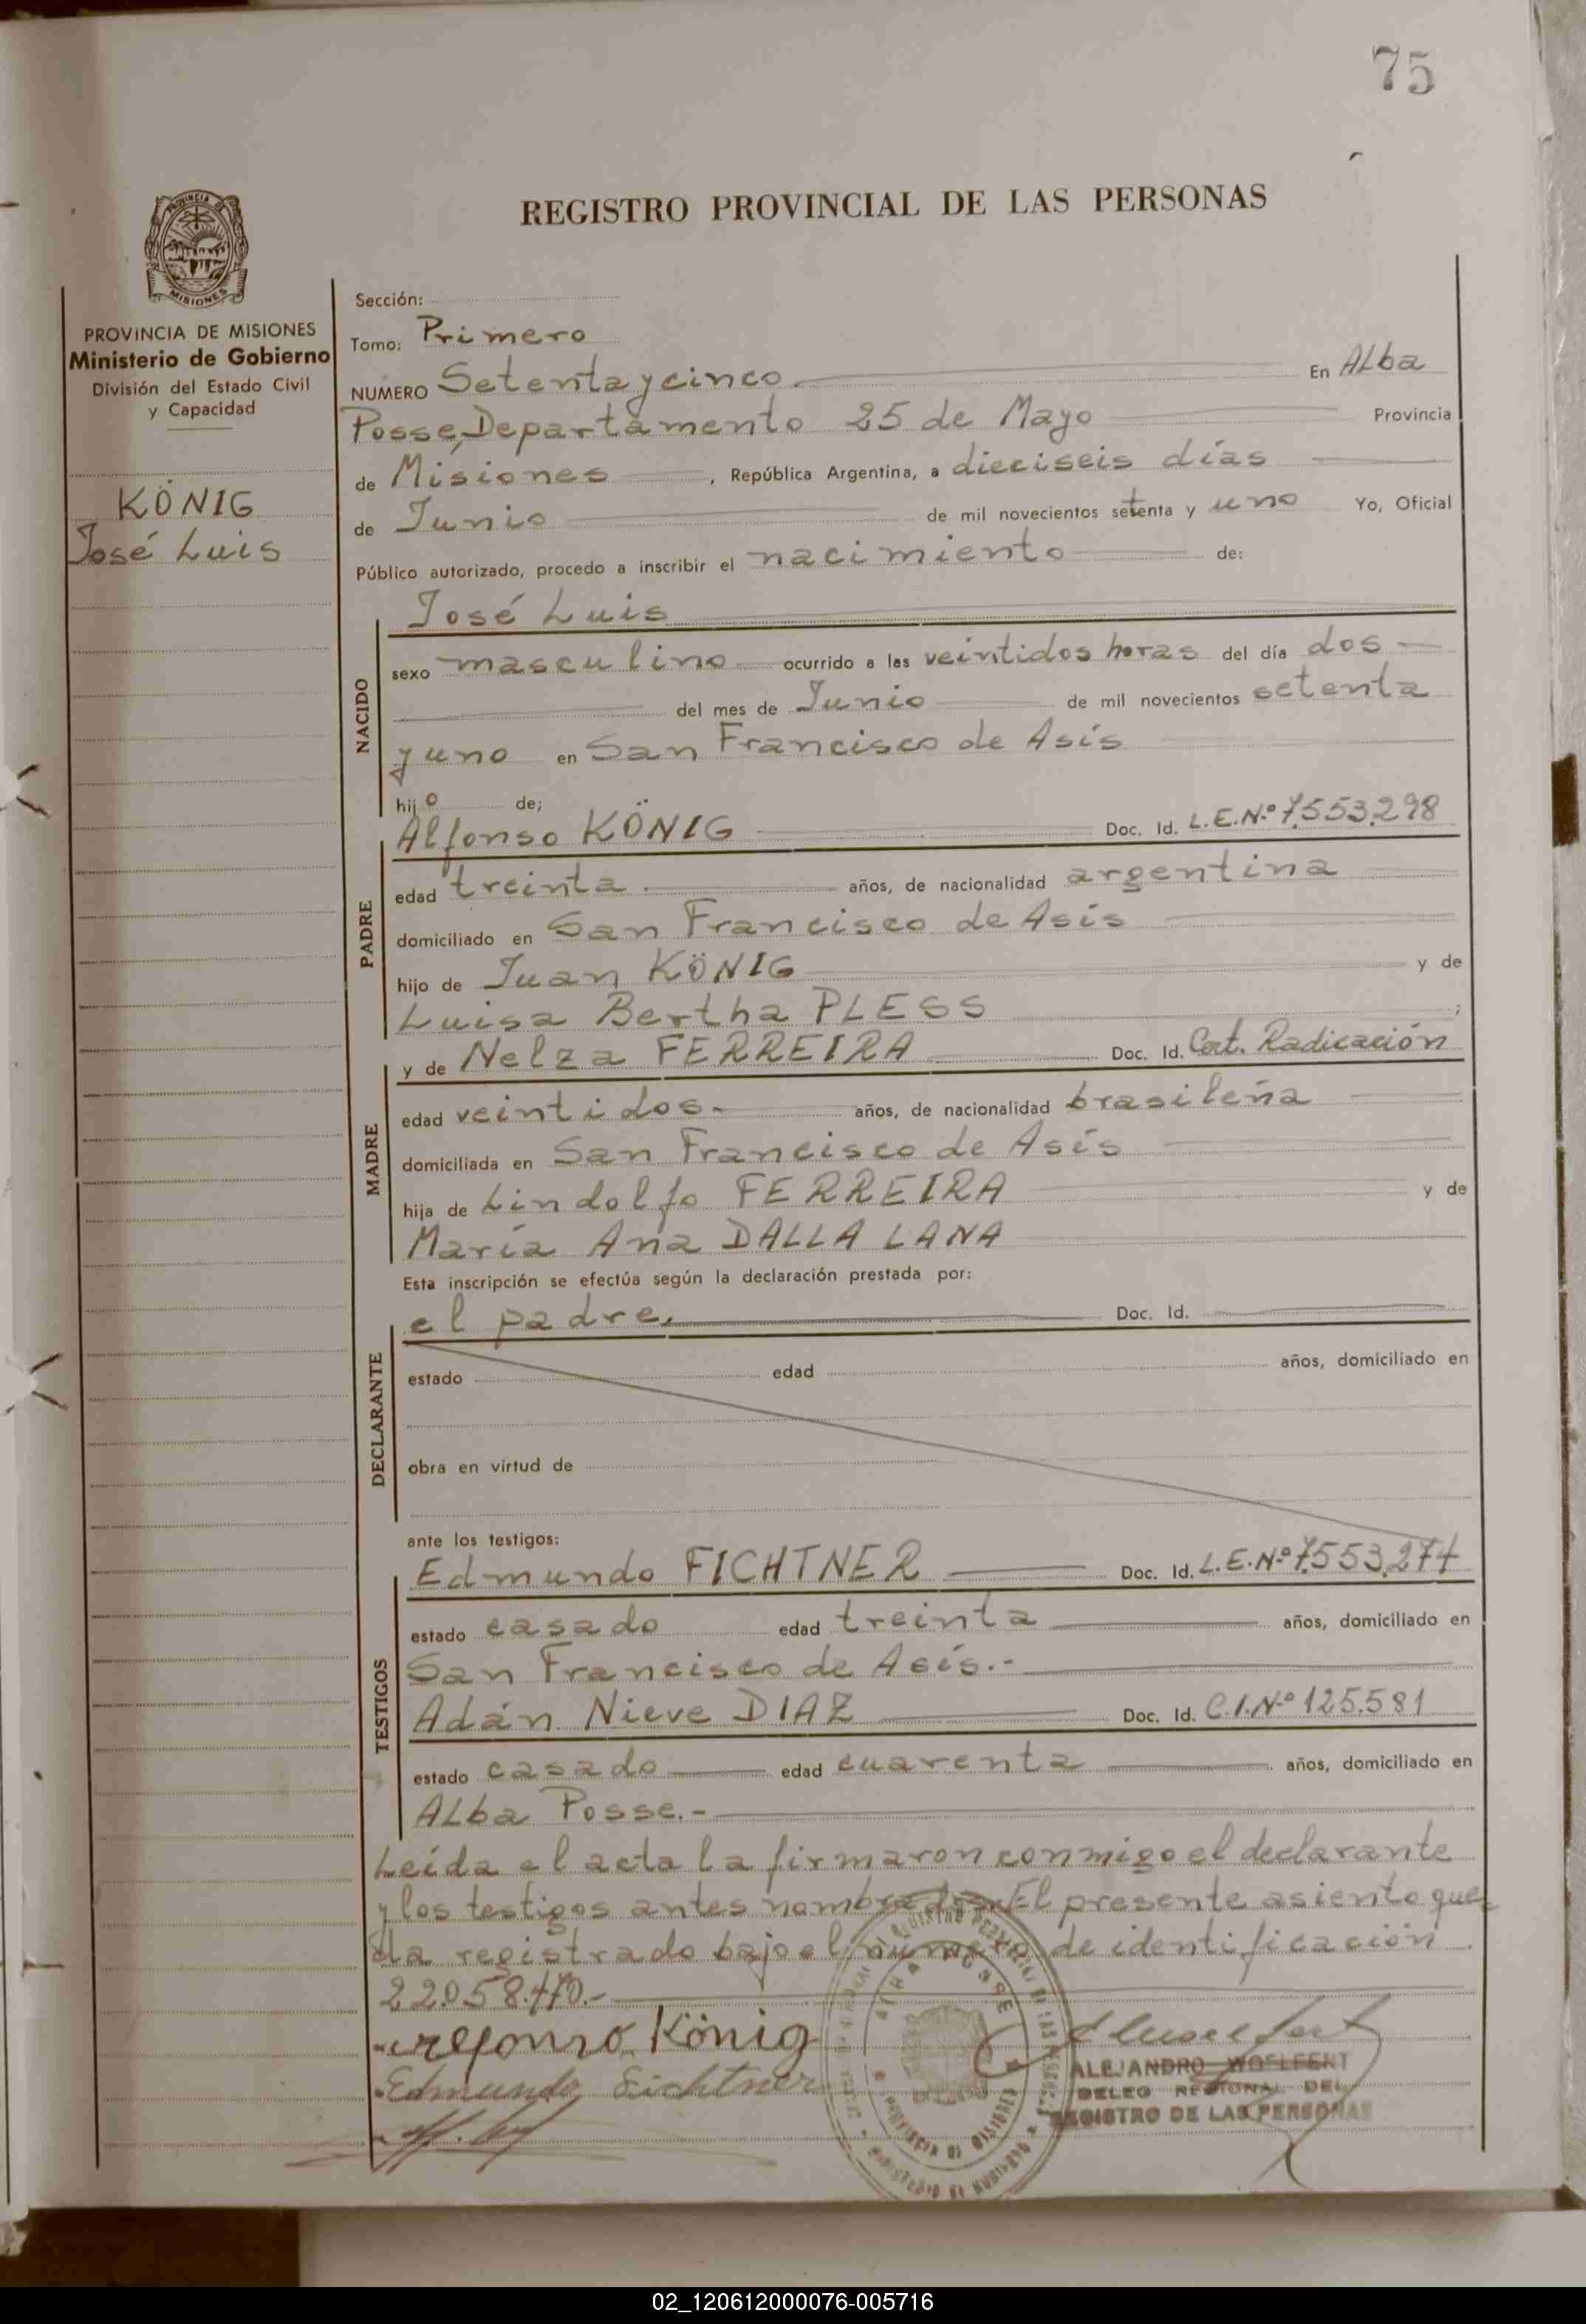 75
REGISTRO PROVINCIAL DE LAS PERSONAS
PROVINCIA DE MISIONES
PROVINCIA DE MISIONES
Ministerio de Gobierno
División del Estado Civil
y Capacidad
KÖNIG
José Luis
Sección:
Tomo: Primero
NUMERO Setenta y cinco. En ALba
Posse, Departamento 25 de Mayo Provincia
de Misiones, República Argentina, a dieciseis días
de Junio de mil novecientos setenta y uno Yo, Oficial
Público autorizado, procedo a inscribir el nacimiento de:
José Luis
NACIDO
sexo masculino ocurrido a las veintidos horas del día dos
del mes de Junio de mil novecientos setenta
y uno en San Francisco de Asís
hijo de;
Alfonso KÖNIG Doc. Id. L.E.Nº 7.553.298
PADRE
edad treinta. años, de nacionalidad argentina
domiciliado en San Francisco de Asís
hijo de Juan KÖNIG y de
Luisa Bertha PLESS ;
y de Nelza FERREIRA Doc. Id. Cert. Radicación
MADRE
edad veintidos.- años, de nacionalidad brasileña
domiciliada en San Francisco de Asís
hija de Lindolfo FERREIRA y de
María Ana DALLA LANA
Esta inscripción se efectúa según la declaración prestada por:
el padre. Doc. Id.
DECLARANTE
estado edad años, domiciliado en
obra en virtud de
ante los testigos:
Edmundo FICHTNER Doc. Id. L.E.Nº 7.553.274
TESTIGOS
estado casado edad treinta años, domiciliado en
San Francisco de Asís.-
Adán Nieve DIAZ Doc. Id. C.I.Nº 125.581
estado casado edad cuarenta años, domiciliado en
ALba Posse.-
Leída el acta la firmaron conmigo el declarante
y los testigos antes nombrados. El presente asiento que-
da registrado bajo el número de identificación
22.058.470.-
Alfonso König
Edmundo Fichtner
ALEJANDRO WOELFERT
DELEG REGIONAL DEL
REGISTRO DE LAS PERSONAS
ALBA POSSE
PROVINCIA DE MISIONES
02_120612000076-005716